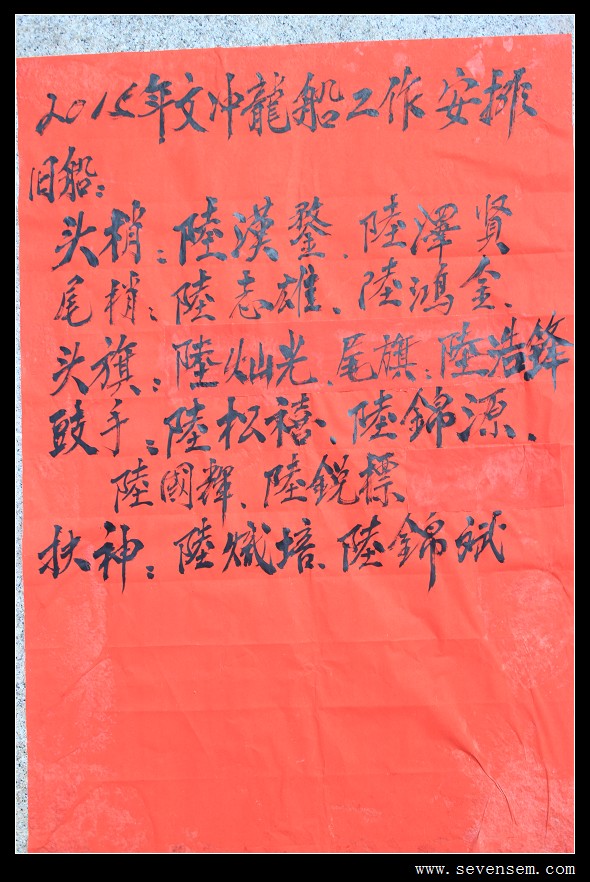 2015年文冲龍船工作安排
旧船：
头梢：陸漢鍪、陸澤贤
尾梢：陸志雄、陸鴻金、
头旗：陸灿光、尾旗：陸浩鋒
鼓手：陸松禧、陸錦源、
陸國輝、陸銳標
扶神：陸熾培、陸錦斌
www.sevensem.com